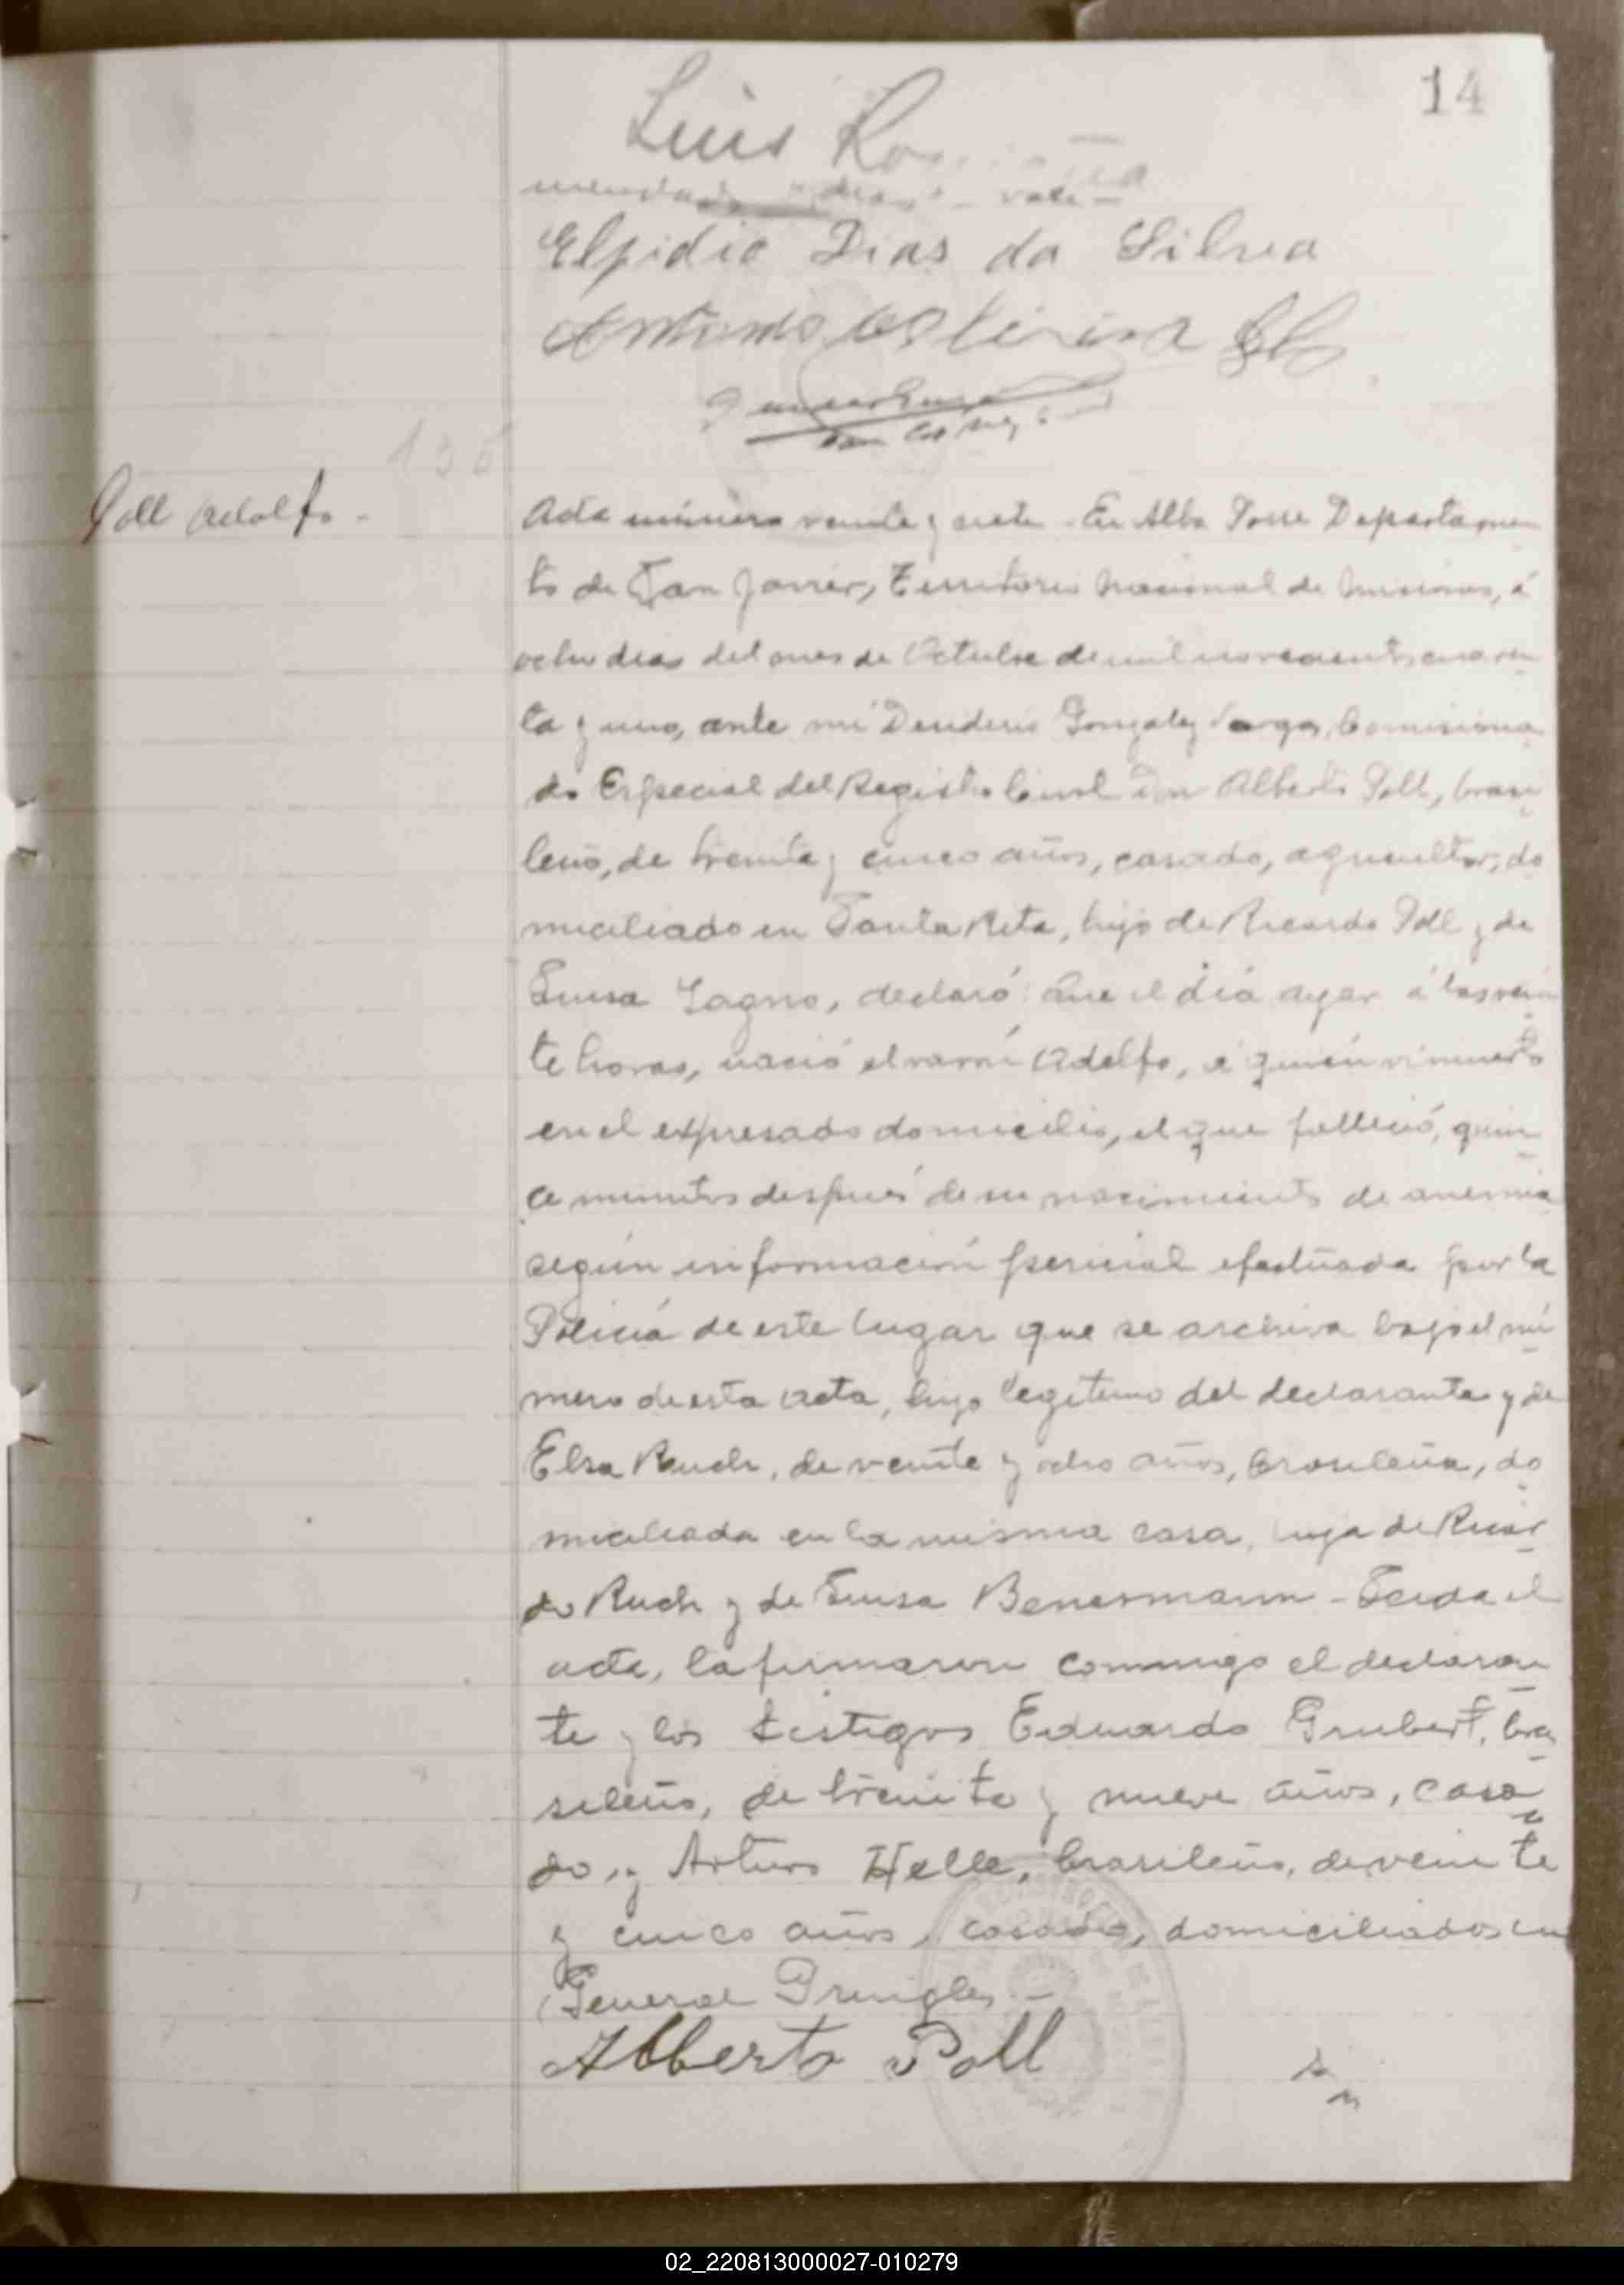 14
Luis
Elpidio Dias da Silva
Antonio
Poll Adolfo.-
Acta número veinte y siete - En Alba Posse Departamen
to de San Javier, Territorio Nacional de Misiones, á
ocho dias del mes de Octubre de mil novecientos cuaren
ta y uno, ante mi Desiderio Gonzalez Vargas, Comisiona
do Especial del Registro Civil Don Alberto Poll, brasi
leño, de treinta y cinco años, casado, agricultor, do
miciliado en Santa Rita, hijo de Ricardo Poll y de
Luisa, declaró: Que el día ayer á las vein
te horas, nació el varón Adolfo, á quién vi muerto
en el expresado domicilio, el que falleció, quin
ce minutos después de su nacimiento de anemia
según información pericial efectuada por la
Policía de este lugar que se archiva bajo el nú
mero de esta acta, hijo legítimo del declarante y de
Elsa Ruch, de veinte y ocho años, brasileña, do
miciliada en la misma casa, hija de Ricar
do Ruch y de Luisa Benermann - Leida el
acta, la firmaron conmigo el declaran
te y los testigos Eduardo Grubert, bra
sileño, de treinta y nueve años, casa
do, y Arturo Helle, brasileño, de veinte
y cinco años, casado, domiciliados en
General Pringles.-
Alberto Poll
02_220813000027-010279